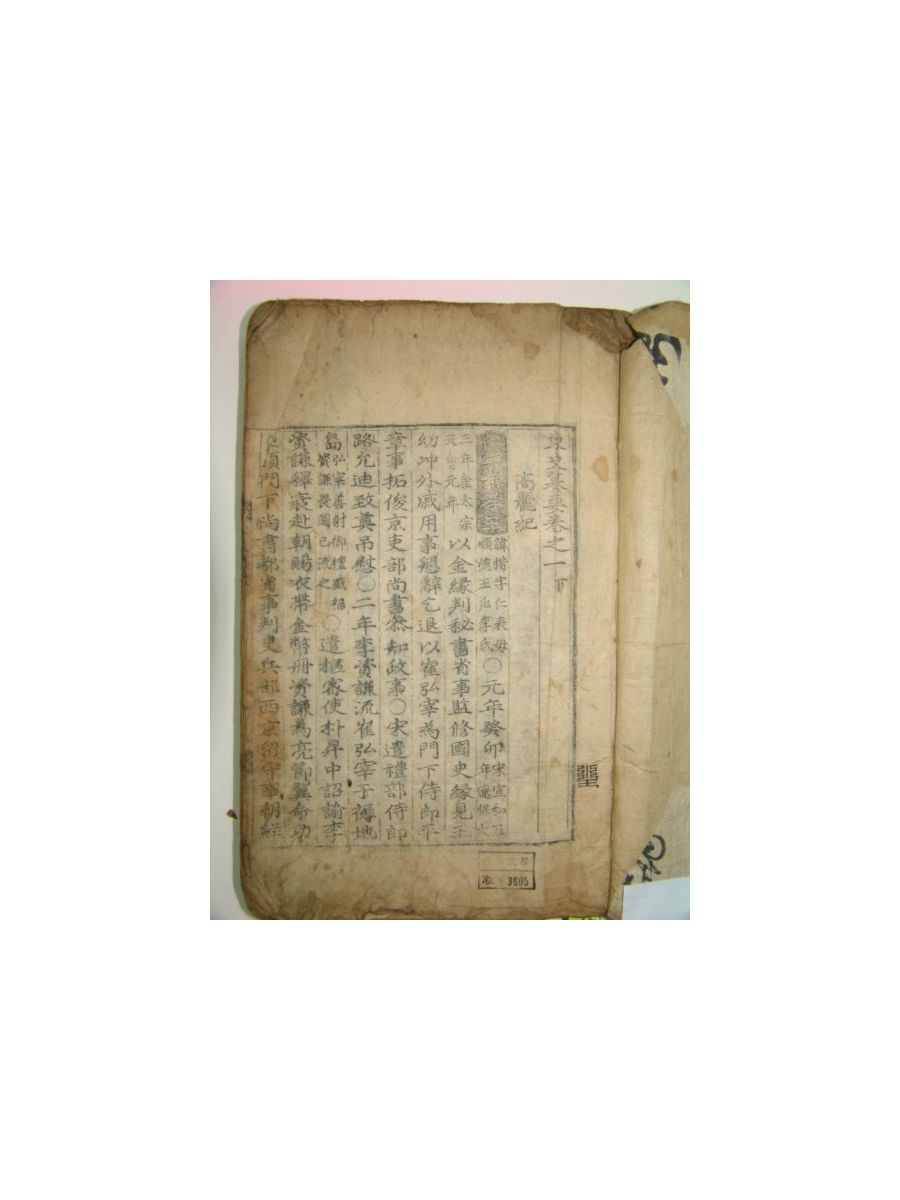 東史纂要卷之一下
高麗紀
諱楷字仁表母
順德王后李氏
○元年癸卯
宋宣和五
年遼保大
三年金太宗
天會元年
以金緣判秘書省事監修國史緣見王
幼冲外戚用事懇辭乞退以崔弘宰為門下侍郎平
章事拓俊京吏部尚書叅知政事○宋遣禮部侍郎
路允迪致奠吊慰○二年李資謙流崔弘宰于褥地
島
弘宰善射御擅威福
資謙畏圖己流之
○遣樞密使朴昇中詔諭李
資謙釋衰赴朝賜衣帶金幣冊資謙為亮節翼命功
臣領門下尚書都省事判吏兵部西京留守事朝鮮
3505